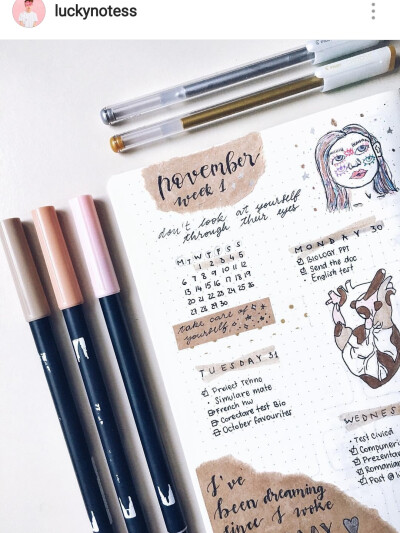 luckynotess
november
week 1
don't look at yourself
through their eyes
M T W T F S S
1 2 3 4 5
6 7 8 9 10 11 12
13 14 15 16 17 18 19
20 21 22 23 24 25 26
27 28 29 30
take care of
yourself
MONDAY 30
BIOLOGY PPT
Send the doc
English test
TUESDAY 31
Proiect Tehno
Simulare mate
French hw
Corectare test Bio
October favourites
WEDNES
Test Civică
Compuneri
Prezentare
Romanian
Post @
I've
been dreaming
since I woke